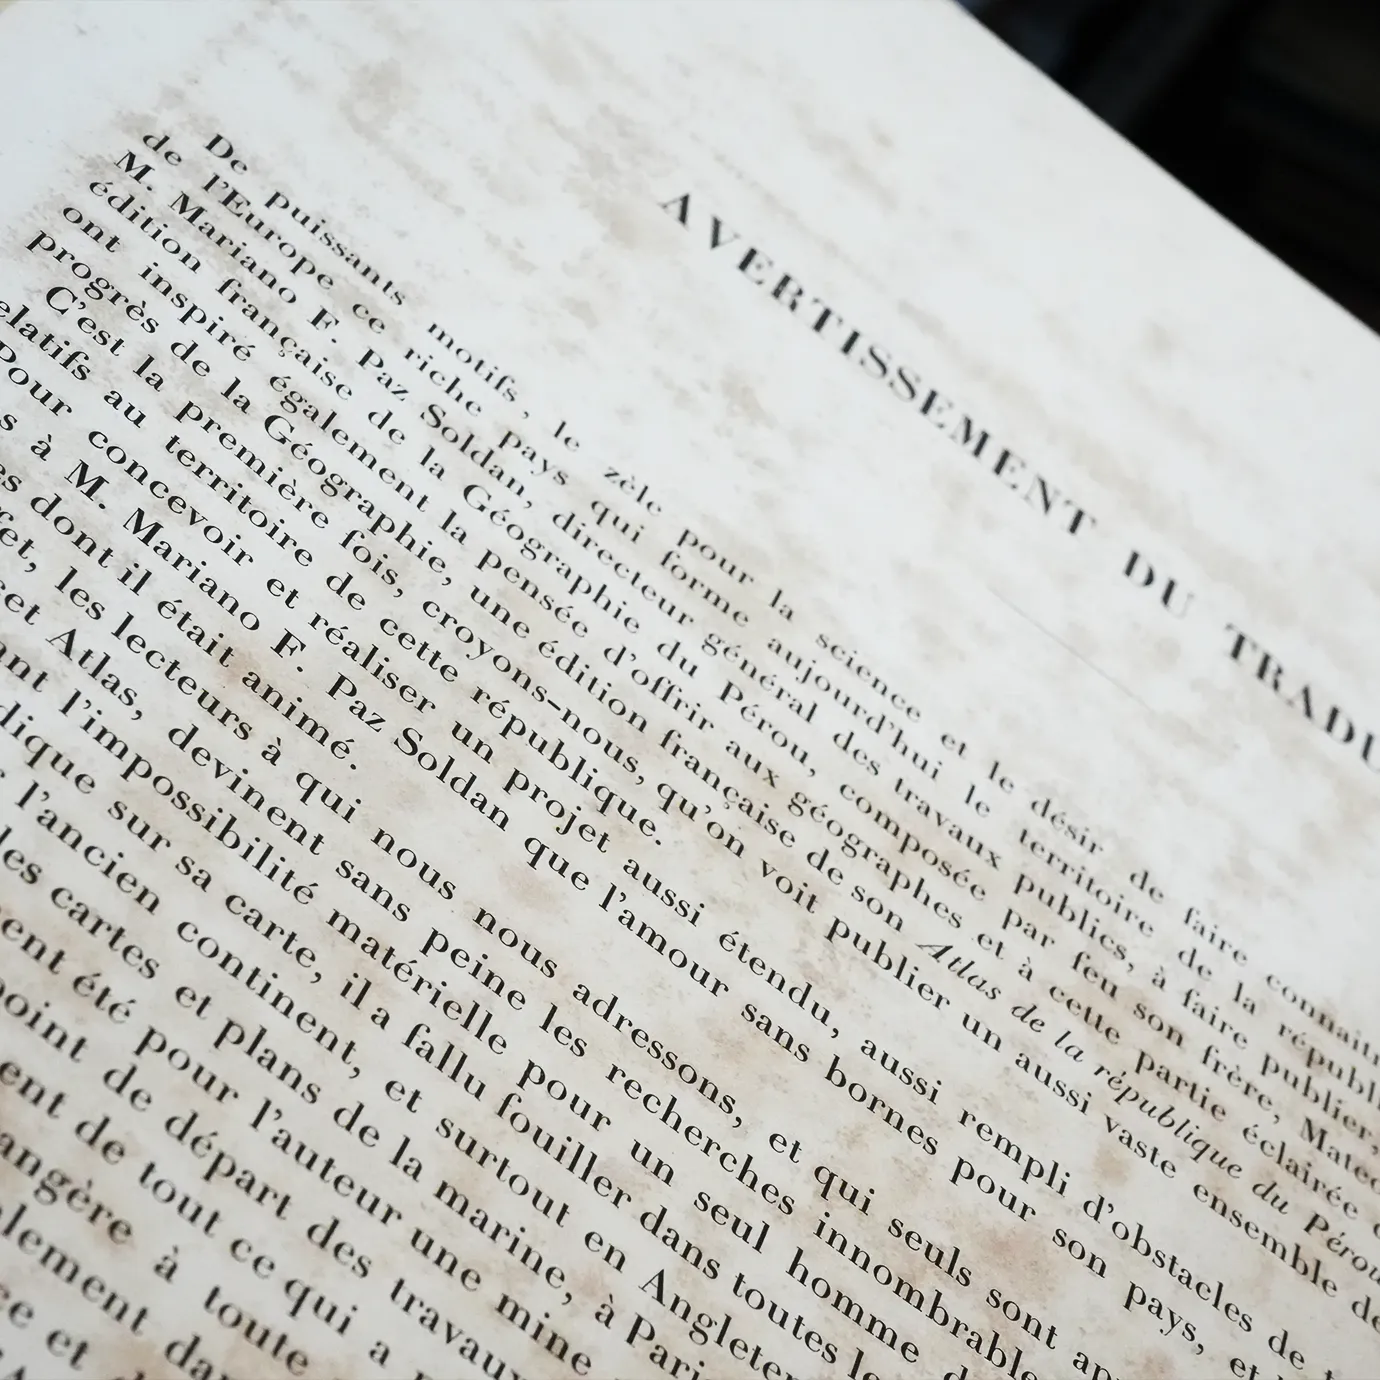 AVERTISSEMENT DU TRADU
De puissants motifs, le zèle pour la science et le désir de faire connaitr
de l'Europe ce riche pays qui forme aujourd'hui le territoire de la républi
M. Mariano F. Paz Soldan, directeur général des travaux publics, à faire publier,
édition française de la Géographie du Pérou, composée par feu son frère, Mateo
ont inspiré également la pensée d'offrir aux géographes et à cette partie éclairée
progrès de la Géographie, une édition française de son Atlas de la république du Pérou
C'est la première fois, croyons-nous, qu'on voit publier un aussi vaste ensemble de
elatifs au territoire de cette république.
Pour concevoir et réaliser un projet aussi étendu, aussi rempli d'obstacles de
s à M. Mariano F. Paz Soldan que l'amour sans bornes pour son pays, et
es dont il était animé.
et, les lecteurs à qui nous nous adressons, et qui seuls sont app
cet Atlas, devinent sans peine les recherches innombrable
ant l'impossibilité matérielle pour un seul homme d
dique sur sa carte, il a fallu fouiller dans toutes le
l'ancien continent, et surtout en Angleter
les cartes et plans de la marine, à Pari
ent été pour l'auteur une mine
point de départ des travaux
ent de tout ce qui a
angère à toute
lement da
ce et